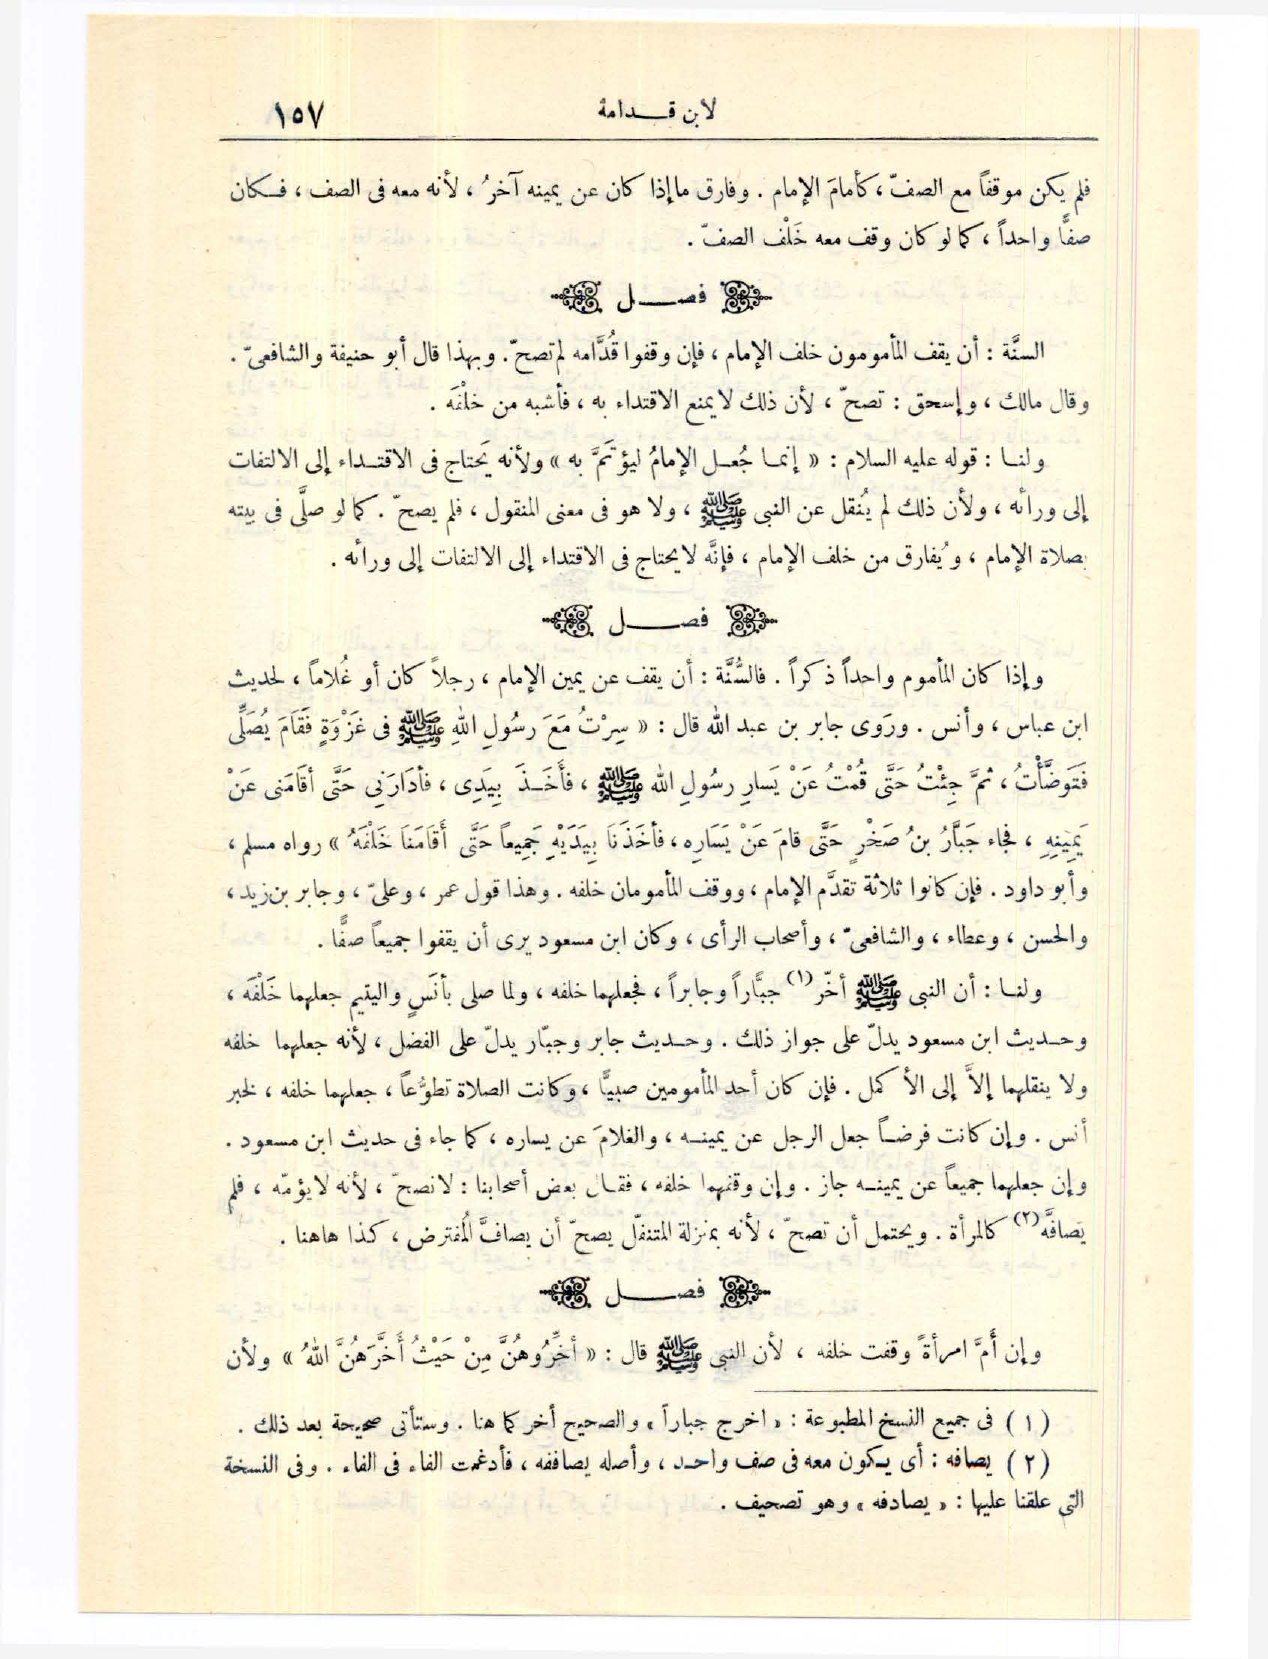 لابن قدامة ١٥٧
فلم يكن موقفاً مع الصفّ ، كأمامَ الإمام . وفارق ما إذا كان عن يمينه آخرُ ، لأنه معه فى الصف ، فكان
صفًّا واحداً ، كما لو كان وقف معه خَلْف الصفّ .
فصل
السنَّة : أن يقف المأمومون خلف الإمام ، فإن وقفوا قُدَّامه لم تصحّ . وبهذا قال أبو حنيفة والشافعىّ .
وقال مالك ، وإسحق : تصحّ ، لأن ذلك لا يمنع الاقتداء به ، فأشبه من خلْفَه .
ولنا : قوله عليه السلام : « إنما جُعل الإمامُ ليؤتَمَّ به » ولأنه يَحتاج فى الاقتداء إلى الالتفات
إلى ورائه ، ولأن ذلك لم يُنقل عن النبى ﷺ ، ولا هو فى معنى المنقول ، فلم يصحّ . كما لو صلَّى فى بيته
بصلاة الإمام ، ويُفارق من خلف الإمام ، فإنَّه لا يحتاج فى الاقتداء إلى الالتفات إلى ورائه .
فصل
وإذا كان المأموم واحداً ذكراً . فالسُّنَّة : أن يقف عن يمين الإمام ، رجلاً كان أو غُلاماً ، لحديث
ابن عباس ، وأنس . ورَوى جابر بن عبد الله قال : « سِرْتُ مَعَ رسُولِ اللهِ ﷺ فى غَزْوَةٍ فَقَامَ يُصَلِّى
فَتَوَضَّأْتُ ، ثمَّ جِئْتُ حَتَّى قُمْتُ عَنْ يَسارِ رسُولِ الله ﷺ ، فأَخَذَ بِيَدِى ، فأدَارَنِى حَتَّى أقَامَنى عَنْ
يَمِينِهِ ، فجاء جَبَّارُ بنُ صَخْرٍ حَتَّى قامَ عَنْ يَسَارِه ، فأخَذَنَا بِيَدَيْهِ جَمِيعاً حَتَّى أَقَامَنَا خَلْفَهُ » رواه مسلم ،
وأبو داود . فإن كانوا ثلاثة تقدَّم الإمام ، ووقف المأمومان خلفه . وهذا قول عمر ، وعلىّ ، وجابر بن زيد ،
والحسن ، وعطاء ، والشافعىّ ، وأصحاب الرأى ، وكان ابن مسعود يرى أن يقفوا جميعاً صفًّا .
ولنا : أن النبى ﷺ أخّر (١) جبَّاراً وجابراً ، فجعلهما خلفه ، ولما صلى بأنَسٍ واليتيم جعلهما خَلْفَه ،
وحديث ابن مسعود يدلّ على جواز ذلك . وحديث جابر وجبّار يدلّ على الفضل ، لأنه جعلهما خلفه
ولا ينقلهما إلاَّ إلى الأكمل . فإن كان أحد المأمومين صبيًّا ، وكانت الصلاة تطوُّعاً ، جعلهما خلفه ، لخبر
أنس . وإن كانت فرضاً جعل الرجل عن يمينه ، والغلامَ عن يساره ، كما جاء فى حديث ابن مسعود .
وإن جعلهما جميعاً عن يمينه جاز . وإن وقفهما خلفه ، فقال بعض أصحابنا : لا تصحّ ، لأنه لا يؤمّه ، فلم
يصافَّه (٢) كالمرأة . ويحتمل أن تصحّ ، لأنه بمنزلة المتنفّل يصحّ أن يصافَّ المُفترض ، كذا هاهنا .
فصل
وإن أمَّ امرأةً وقفت خلفه ، لأن النبى ﷺ قال : « أخِّرُوهُنَّ مِنْ حَيْثُ أَخَّرَهُنَّ اللهُ » ولأن
( ١ ) فى جميع النسخ المطبوعة : « اخرج جباراً » والصحيح أخر كما هنا . وستأتى صحيحة بعد ذلك .
( ٢ ) يصافه : أى يكون معه فى صف واحد ، وأصله يصاففه ، فأدغمت الفاء فى الفاء . وفى النسخة
التى علقنا عليها : « يصادفه » وهو تصحيف .